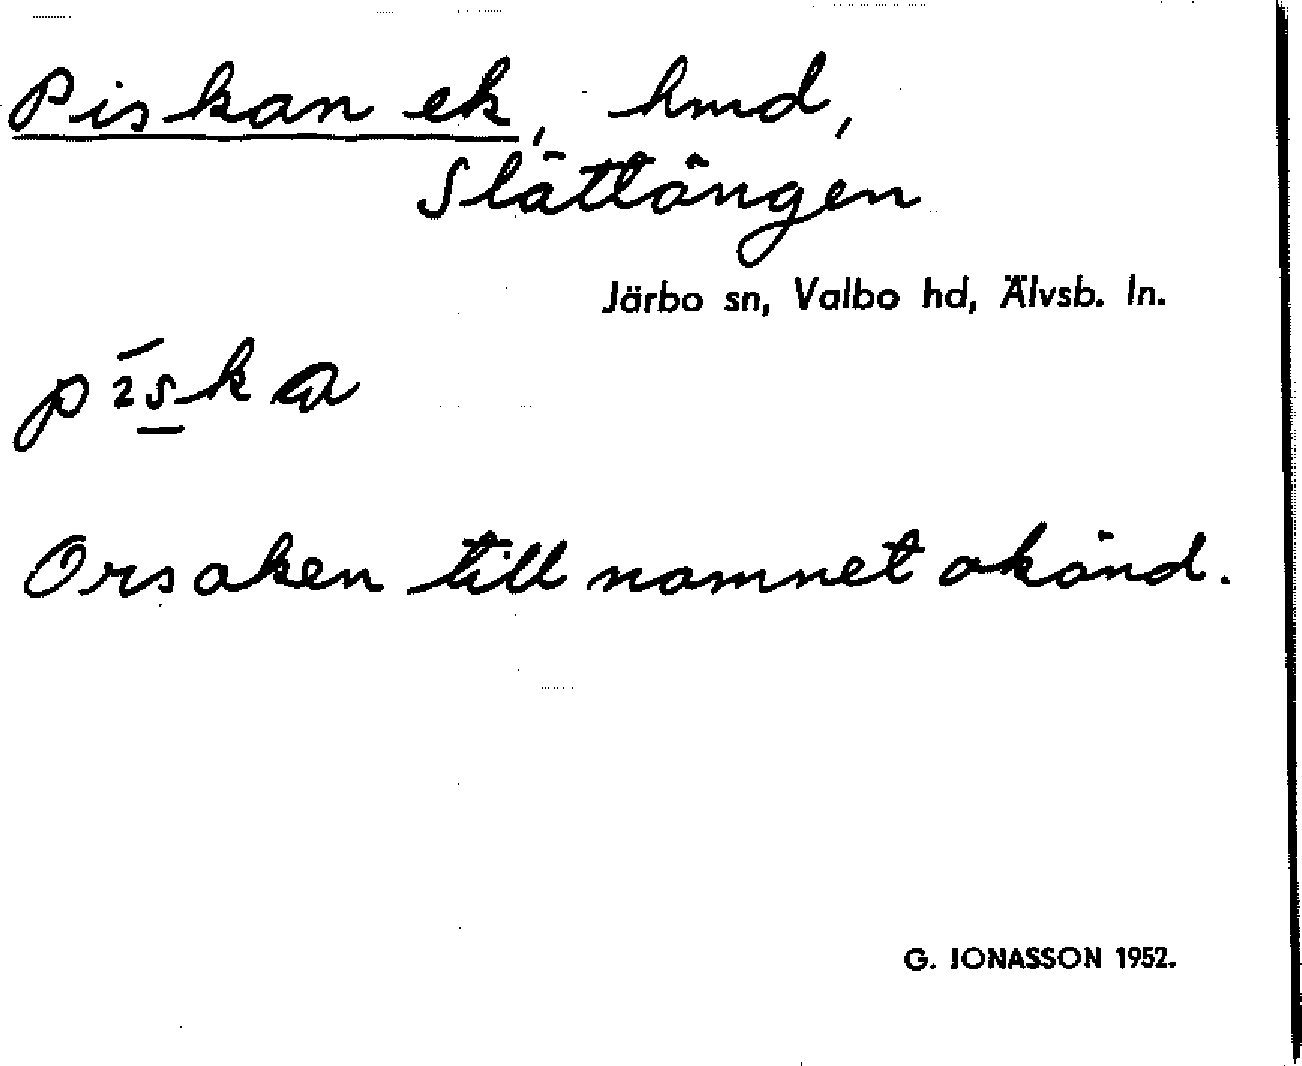 Piskan ek, hmd,
Slättängen
Järbo sn, Valbo hd, Älvsb. ln.
píska
Orsaken till namnet okänd.
G. JONASSON 1952.